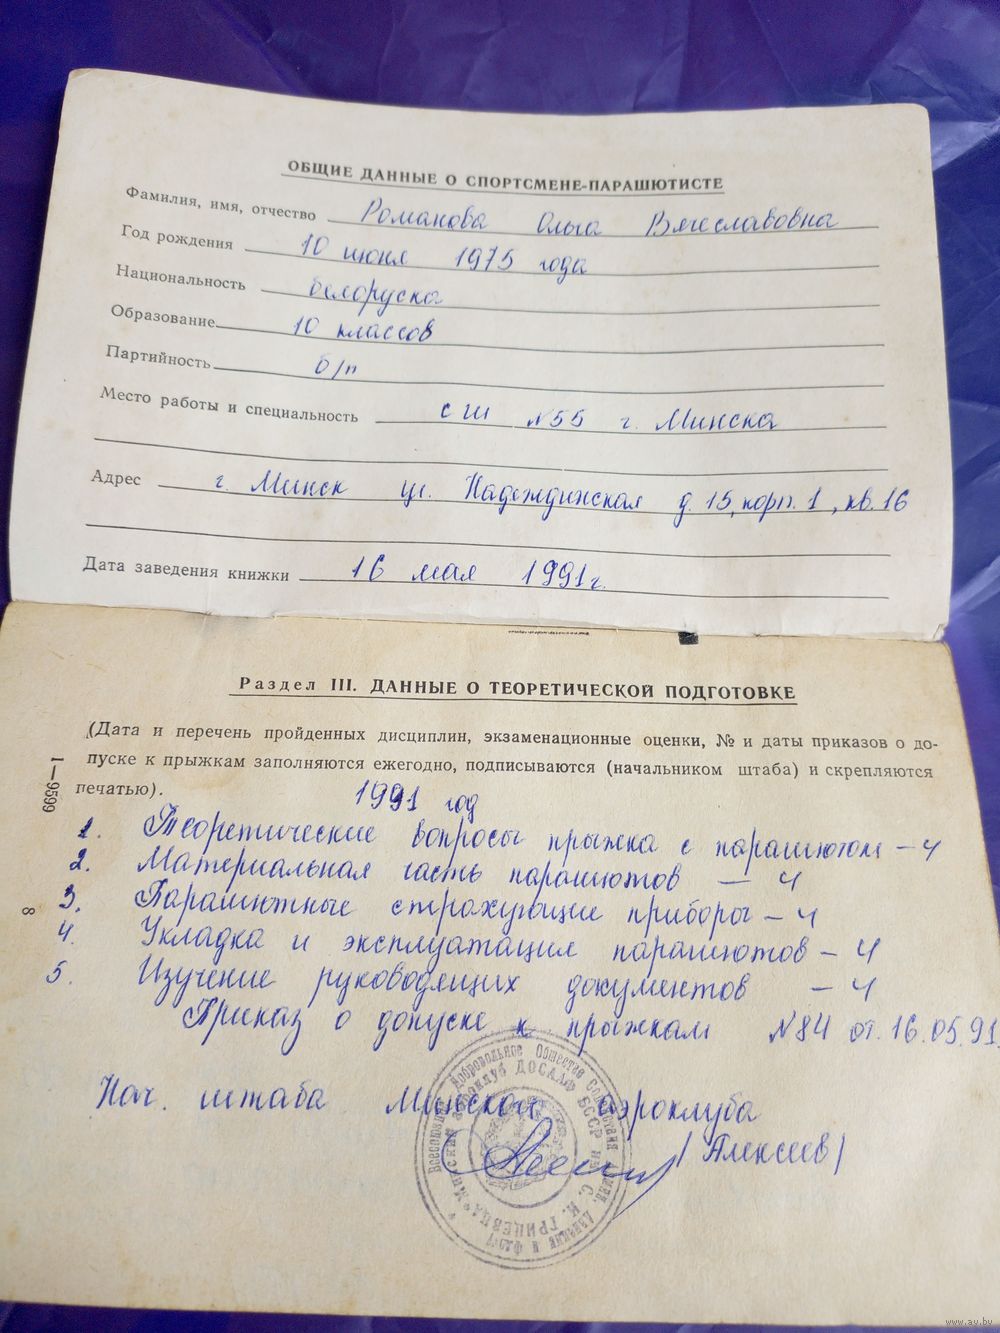 ОБЩИЕ ДАННЫЕ О СПОРТСМЕНЕ-ПАРАШЮТИСТЕ
Фамилия, имя, отчество Романова Ольга Вячеславовна
Год рождения 10 июня 1975 года
Национальность белоруска
Образование 10 классов
Партийность б/п
Место работы и специальность сш №55 г. Минска
Адрес г. Минск ул. Надеждинская д. 15, корп. 1, кв. 16
Дата заведения книжки 16 мая 1991 г.
Раздел III. ДАННЫЕ О ТЕОРЕТИЧЕСКОЙ ПОДГОТОВКЕ
(Дата и перечень пройденных дисциплин, экзаменационные оценки, № и даты приказов о до-
пуске к прыжкам заполняются ежегодно, подписываются (начальником штаба) и скрепляются
печатью).
1991 год
1. Теоретические вопросы прыжка с парашютом – 4
2. Материальная часть парашютов — 4
3. Парашютные страхующие приборы – 4
4. Укладка и эксплуатация парашютов – 4
5. Изучение руководящих документов – 4
Приказ о допуске к прыжкам №84 от. 16.05.91.
Нач. штаба Минского аэроклуба
/Алексеев/
Добровольное Общество Содействия Армии, Авиации и Флоту
Минский аэроклуб ДОСААФ БССР им. С. И. ГРИЦЕВЦА
1—9599
8
www.ay.by